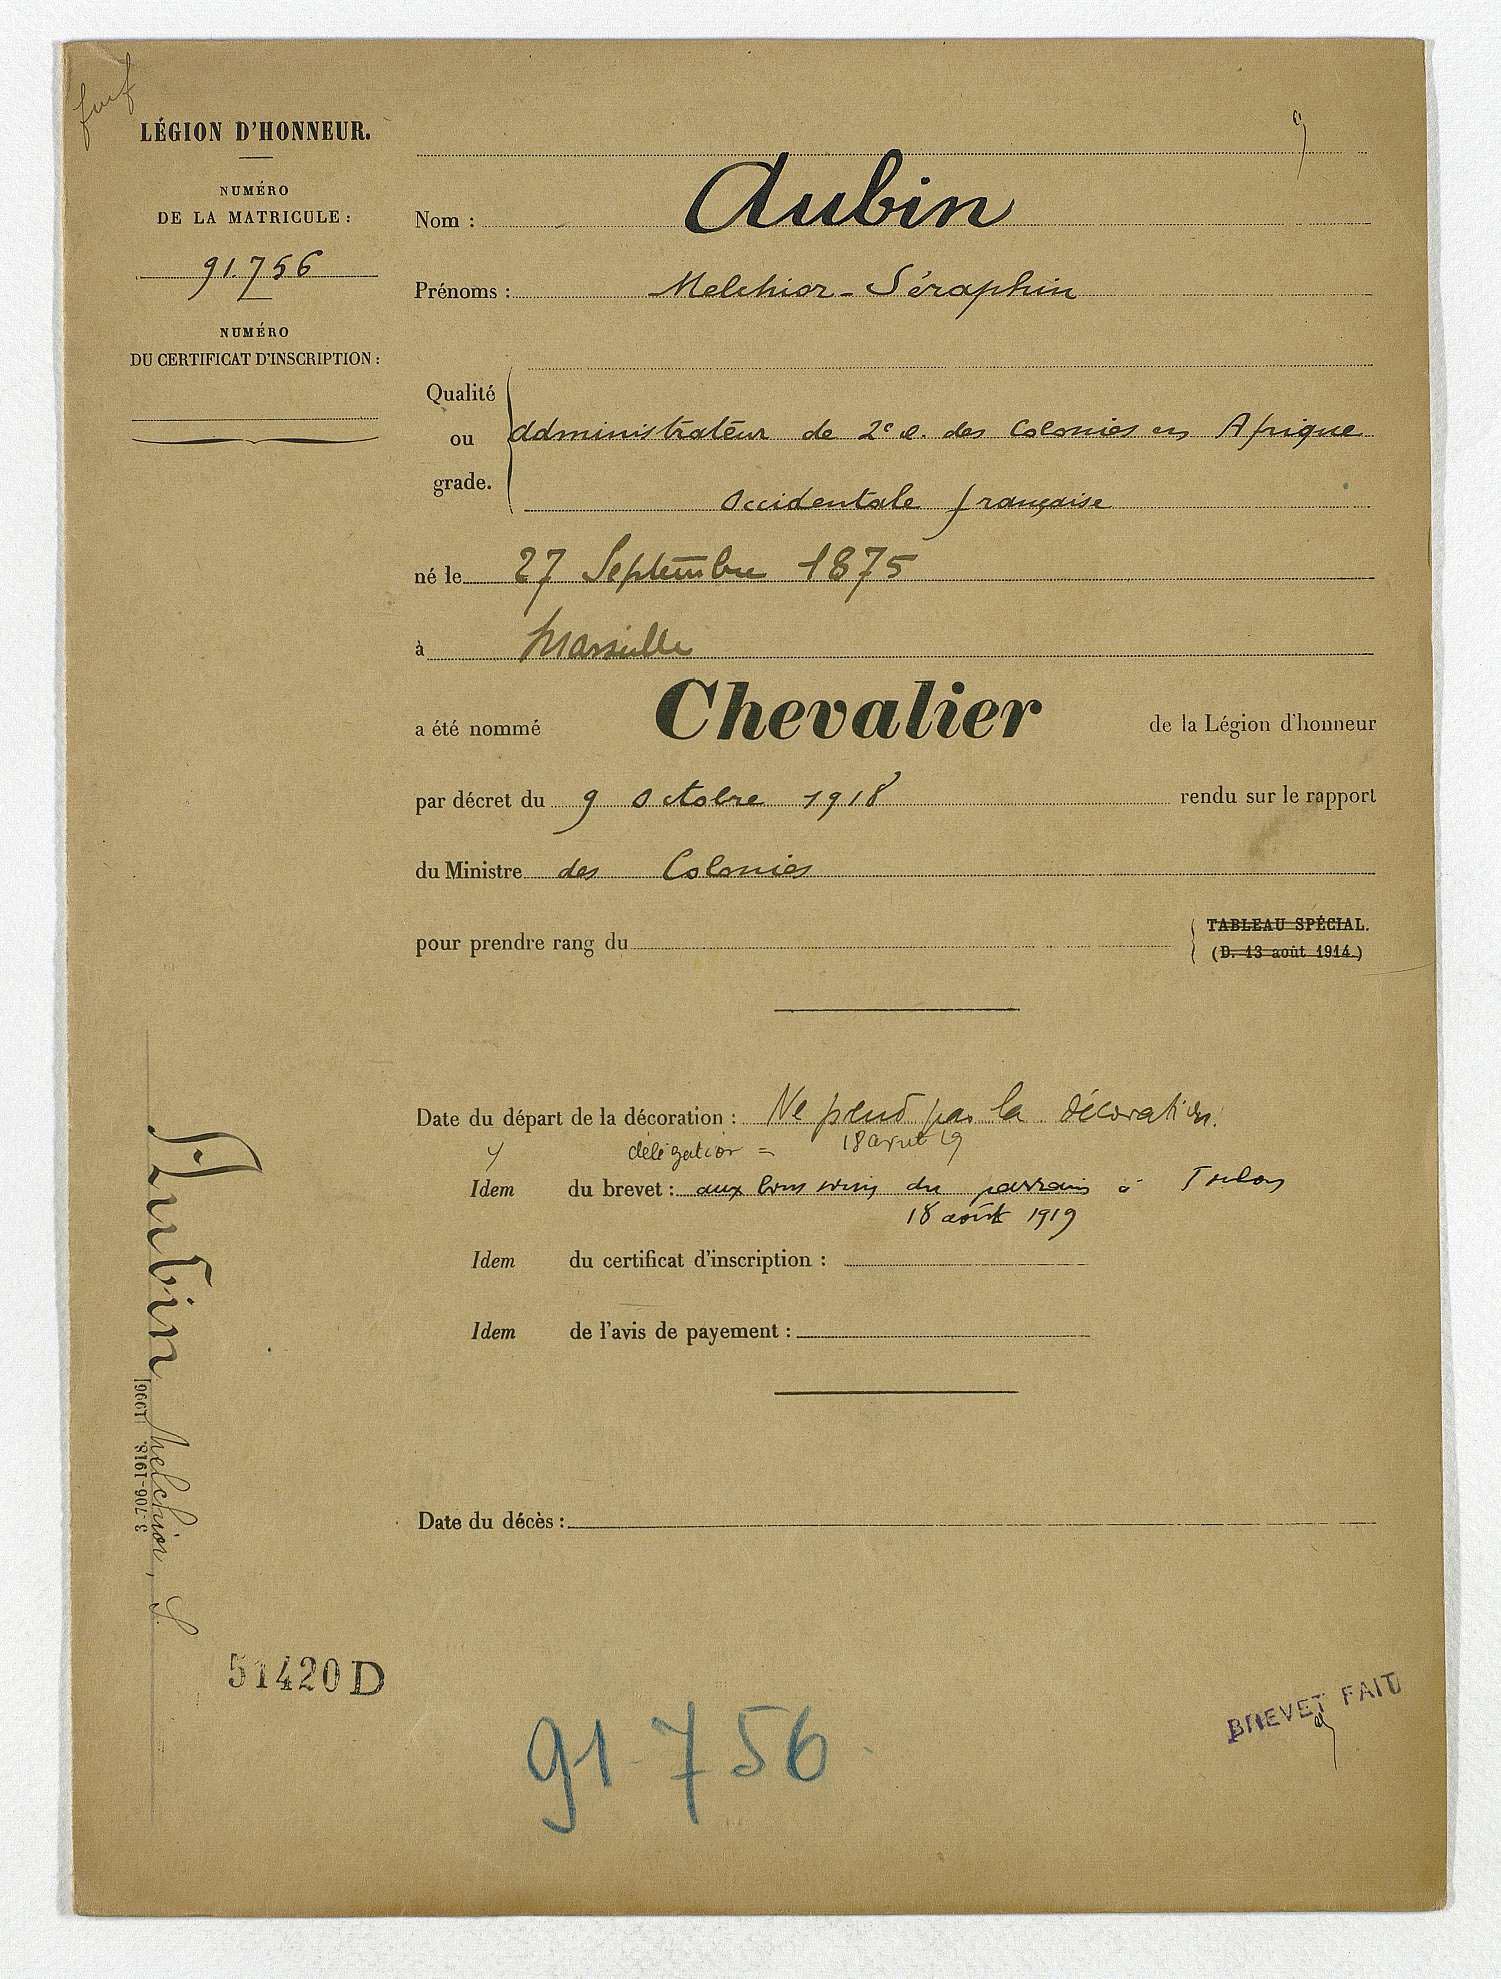 LÉGION D'HONNEUR.
NUMÉRO
DE LA MATRICULE :
91.756
NUMÉRO
DU CERTIFICAT D'INSCRIPTION :
Nom : Aubin
Prénoms : Melchior-Séraphin
Qualité
ou
grade.
Administrateur de 2e cl. des Colonies en Afrique
Occidentale française
né le 27 Septembre 1875
à Marseille
a été nommé Chevalier de la Légion d'honneur
par décret du 9 octobre 1918 rendu sur le rapport
du Ministre des Colonies
pour prendre rang du
TABLEAU SPÉCIAL.
(D. 13 août 1914.)
Date du départ de la décoration : Ne prend pas la décoration.
délégation = 18 août 19
Idem du brevet : aux bons soins du parrain à Toulon
18 août 1919
Idem du certificat d'inscription :
Idem de l'avis de payement :
Date du décès :
Aubin Melchior, S.
3-706-1918. [9061]
51420 D
91.756
BREVET FAIT